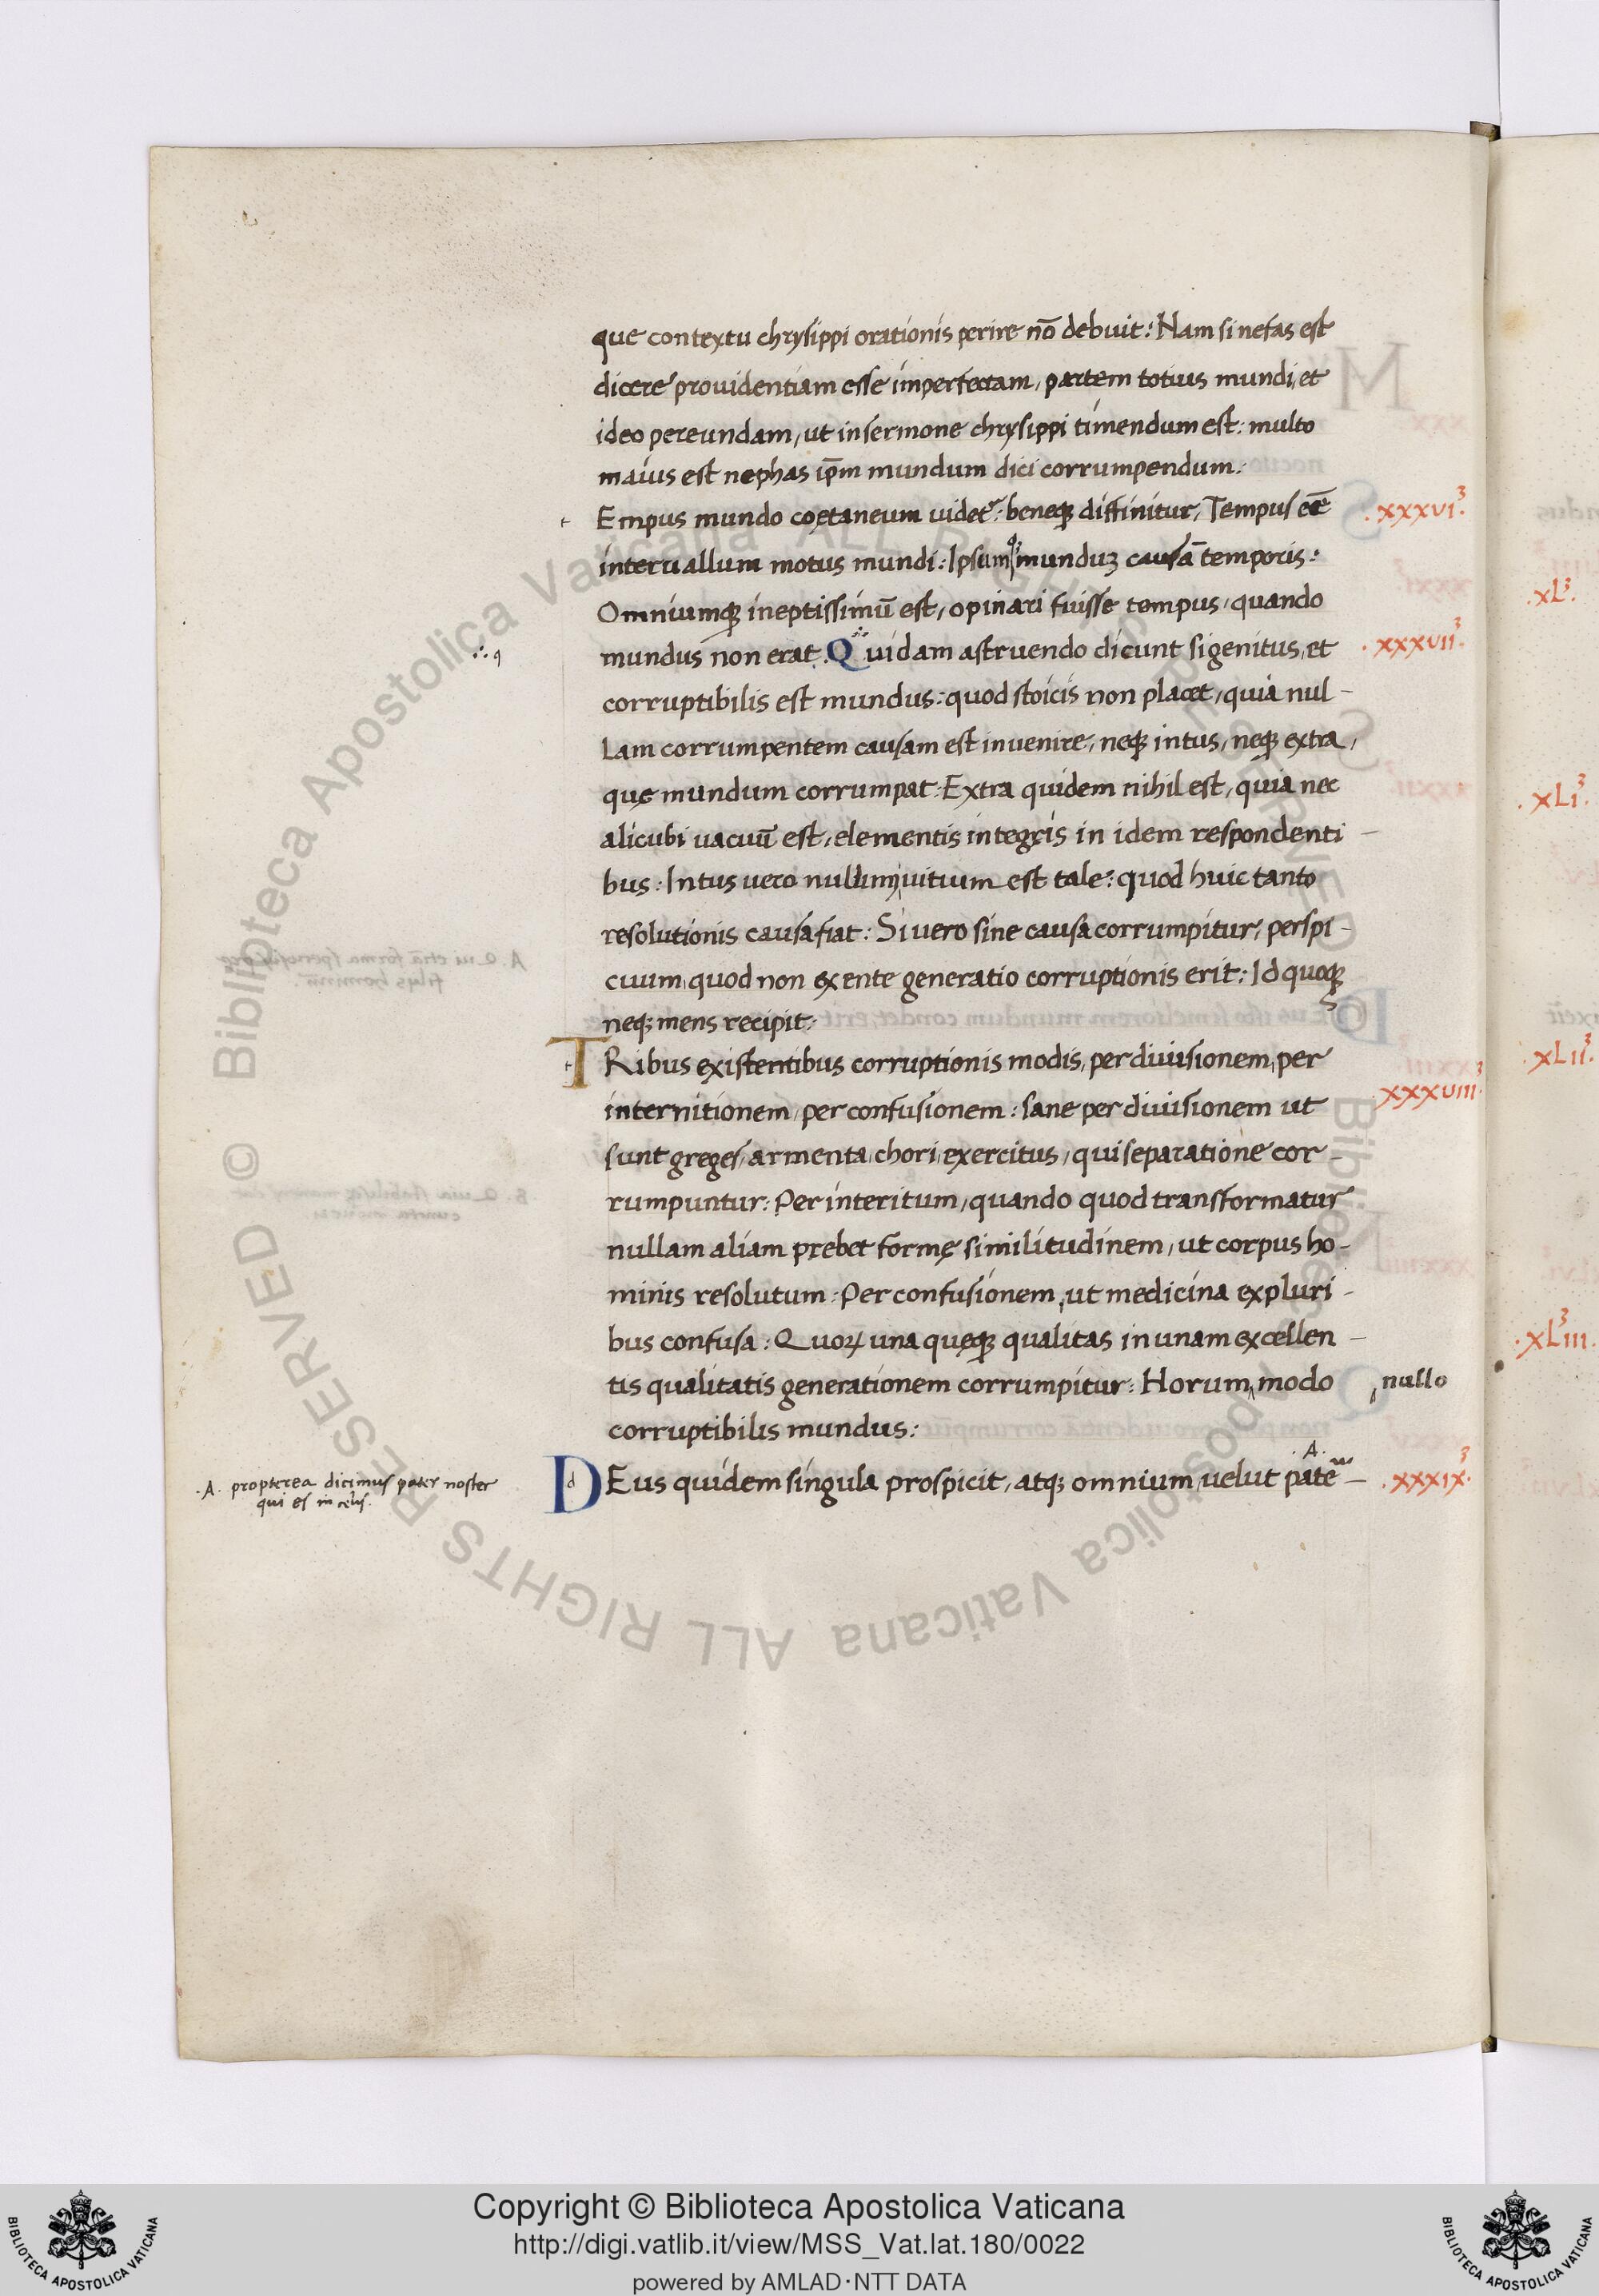 que contextu chrysippi orationis perire nō debuit: Nam si nefas est
dicere prouidentiam esse imperfectam, partem totius mundi, et
ideo pereundam, ut in sermone chrysippi timendum est: multo
maius est nephas ip̄m mundum dici corrumpendum:
Empus mundo coętaneum uidet᷑: beneqꝫ diffinitur, Tempus eē .xxxvi³.
interuallum motus mundi: Ipsumqꝫ munduꝫ causā temporis:
Omniumqꝫ ineptissimū est, opinari fuisse tempus, quando
mundus non erat. Quidam astruendo dicunt si genitus, et .xxxvii³.
corruptibilis est mundus: quod stoicis non placet, quia nul-
lam corrumpentem causam est inuenire, neqꝫ intus, neqꝫ extra,
quę mundum corrumpat: Extra quidem nihil est, quia nec
alicubi uacuū est, elementis integris in idem respondenti-
bus: Intus uero nullum uitium est tale: quod huic tanto
resolutionis causa fiat: Si uero sine causa corrumpitur, perspi-
cuum, quod non ex ente generatio corruptionis erit: Id quoqꝫ
neqꝫ mens recipit:
TRibus existentibus corruptionis modis, per diuisionem, per
.xxxviii³.
internitionem, per confusionem: sane per diuisionem ut
sunt greges, armenta, chori, exercitus, qui separatione cor-
rumpuntur: Per interitum, quando quod transformatur
nullam aliam prebet formę similitudinem, ut corpus ho-
minis resolutum: Per confusionem, ut medicina ex pluri-
bus confusa: Quoꝝ una quęqꝫ qualitas in unam excellen-
tis qualitatis generationem corrumpitur: Horum modo nullo
corruptibilis mundus:
.A.
DEus quidem singula prospicit, atqꝫ omnium, uelut pate- .xxxix³.
.A. propterea dicimus pater noster
qui es in celis.
.xL³.
.xLi³.
.xLii³.
.xLiii³.
© Biblioteca Apostolica Vaticana ALL RIGHTS RESERVED
© Biblioteca Apostolica Vaticana ALL RIGHTS RESERVED
Copyright © Biblioteca Apostolica Vaticana
http://digi.vatlib.it/view/MSS_Vat.lat.180/0022
powered by AMLAD·NTT DATA
BIBLIOTECA APOSTOLICA VATICANA
BIBLIOTECA APOSTOLICA VATICANA